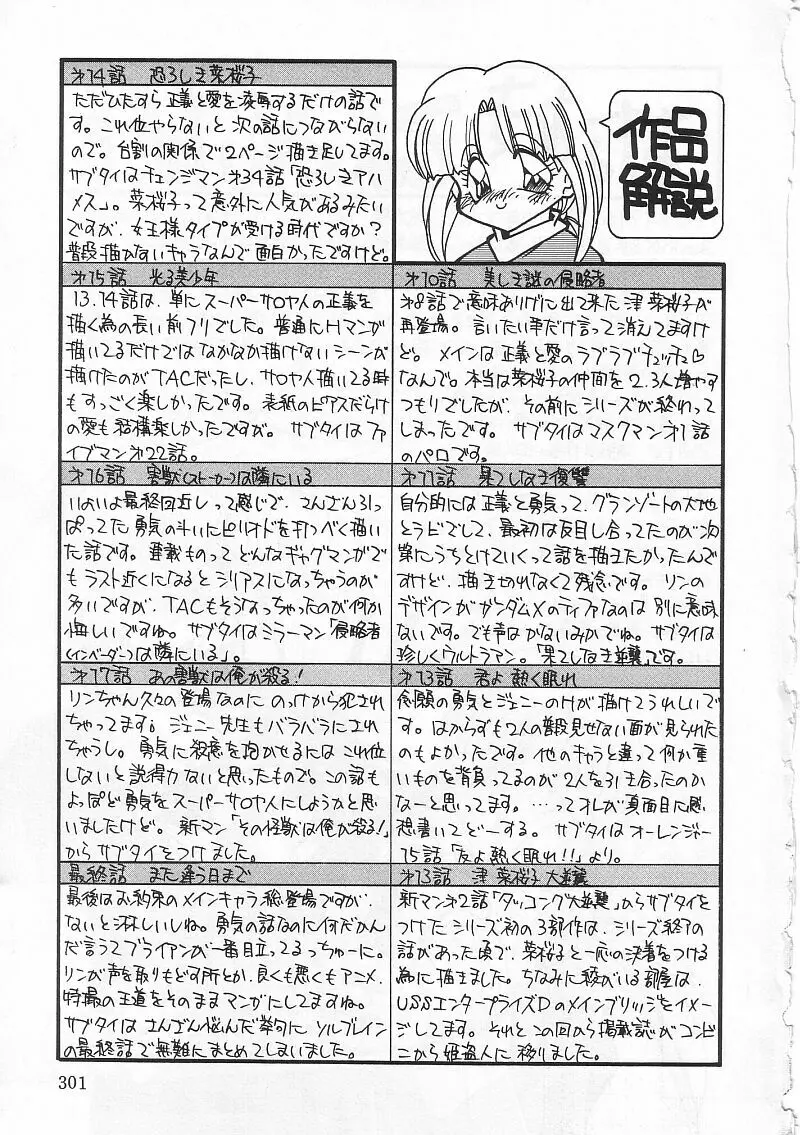 作品
解説
第10話 美しき謎の侵略者
第8話で意味ありげに出て来た津 菜桜子が
再登場。言いたい事だけ言って消えてますけ
ど。メインは正義と愛のラブラブチュッチュ♡
なんで。本当は菜桜子の仲間を2.3人増やす
つもりでしたが、その前にシリーズが終わって
しまったです。 サブタイはマスクマン第1話
のパロです。
第11話 果てしなき復讐
自分的には正義と勇気って、グランゾートの大地
とラビでして、最初は反目し合ってたのが次
第にうちとけていくって話を描きたかったんで
すけど、描き切れなくて残念です。リンの
デザインがガンダムXのティファなのは別に意味
ないです。でも声はかないみかでね。サブタイは
珍しくウルトラマン。「果てしなき逆襲」です。
第13話 君よ熱く眠れ
念願の勇気とジェニーのHが描けてうれしいで
す。はからずも2人の普段見せない面が見られた
のもよかったです。他のキャラと違って何か重
いものを背負ってるのが2人を引き合ったのか
なーと思ってます。…ってオレが真面目に感
想書いてどーする。 サブタイはオーレンジャー
15話「友よ熱く眠れ!!」より。
第13話 津 菜桜子 大逆襲
新マン第2話「タッコング大逆襲」からサブタイを
つけたシリーズ初の3部作は、シリーズ終了の
話があった頃で、菜桜子と一応の決着をつける
為に描きました。ちなみに彼がいる部屋は、
USSエンタープライズDのメインブリッジをイメー
ジしてます。 それとこの回から掲載誌がコンビ
ニから姫盗人に移りました。
第14話 恐ろしき菜桜子
ただひたすら正義と愛を凌辱するだけの話で
す。これ位やらないと次の話につながらない
ので。台割の関係で2ページ描き足してます。
サブタイはチェンジマン第34話「恐ろしきアハ
メス」。菜桜子って意外に人気があるみたい
ですが、女王様タイプが受ける時代ですか?
普段描かないキャラなんで面白かったですけど。
第15話 光る美少年
13.14話は、単にスーパーサロヤ人の正義を
描く為の長い前フリでした。普通にHマンが
描いてるだけではなかなか描けないシーンが
描けたのがTACだったし、サロヤ人描いてる時
もすっごく楽しかったです。表紙のピアスだらけ
の愛も結構楽しかったですが。 サブタイはファ
イブマン第22話。
第16話 害獣(ストーカー)は隣にいる
いよいよ最終回近しって感じで、さんざん引っ
ぱってた勇気の斗いにピリオドを打つべく描い
た話です。連載ものってどんなギャグマンガで
もラスト近くになるとシリアスになっちゃうのが
多いですが、TACもそうなっちゃったのが何か
悔しいですね。サブタイはミラーマン「侵略者
(インベーダー)は隣にいる」。
第17話 あの害獣は俺が殺る!
リンちゃん久々の登場なのにのっけから犯され
ちゃってます。ジェニー先生もバラバラにされ
ちゃうし。勇気に殺意を抱かせるにはこれ位
しないと説得力ないと思ったもので。この話も
よっぽど勇気をスーパーサロヤ人にしようかと思
いましたけど。新マン「その怪獣は俺が殺る!」
からサブタイをつけました。
最終話 また逢う日まで
最後はお約束のメインキャラ総登場ですが、
ないと淋しいしね。勇気の話なのに何だかん
だ言うてブライアンが一番目立ってるっちゅーに。
リンが声を取りもどす所とか、良くも悪くもアニメ、
特撮の王道をそのままマンガにしてますね。
サブタイはさんざん悩んだ挙句にソルブレイン
の最終話で無難にまとめてしまいました。
301